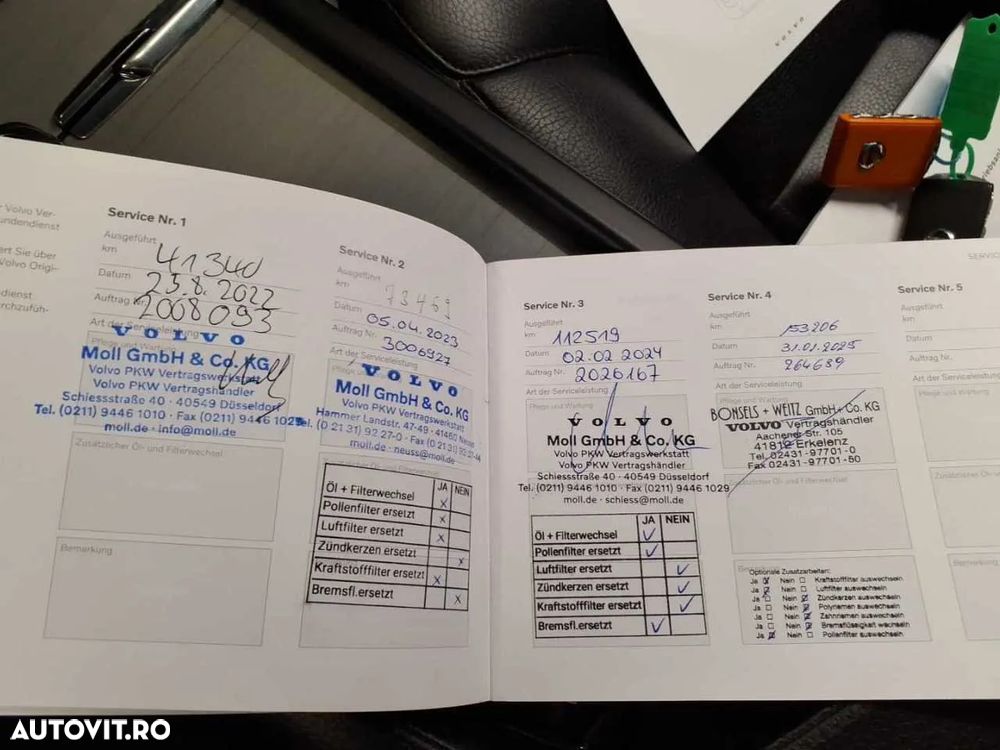 VOLVO
r Volvo Ver-
undendienst
ert Sie über
Volvo Origi-
dienst
rchzufüh-
Service Nr. 1
Ausgeführt
km 41340
Datum 25.8.2022
Auftrag Nr. 2008093
Art der Serviceleistung
Pflege und Wartung
VOLVO
Moll GmbH & Co. KG
Volvo PKW Vertragswerkstatt
Volvo PKW Vertragshändler
Schiessstraße 40 · 40549 Düsseldorf
Tel. (0211) 9446 1010 · Fax (0211) 9446 1029
moll.de · info@moll.de
Zusätzlicher Öl- und Filterwechsel
Bemerkung
Service Nr. 2
Ausgeführt
km 73469
Datum 05.04.2023
Auftrag Nr. 3006927
Art der Serviceleistung
VOLVO
Moll GmbH & Co. KG
Volvo PKW Vertragswerkstatt
Hammer Landstr. 47-49 · 41460 Neuss
Tel. (0 21 31) 92 27-0 · Fax (0 21 31)
moll.de · neuss@moll.de
JA NEIN
Öl + Filterwechsel X
Pollenfilter ersetzt X
Luftfilter ersetzt X
Zündkerzen ersetzt X
Kraftstofffilter ersetzt X
Bremsfl.ersetzt X
Service Nr. 3
Ausgeführt
km 112519
Datum 02.02 2024
Auftrag Nr. 2026167
Art der Serviceleistung
Pflege und Wartung
VOLVO
Moll GmbH & Co. KG
Volvo PKW Vertragswerkstatt
Volvo PKW Vertragshändler
Schiessstraße 40 · 40549 Düsseldorf
Tel. (0211) 9446 1010 · Fax (0211) 9446 1029
moll.de · schiess@moll.de
JA NEIN
Öl + Filterwechsel ✓
Pollenfilter ersetzt ✓
Luftfilter ersetzt ✓
Zündkerzen ersetzt ✓
Kraftstofffilter ersetzt ✓
Bremsfl.ersetzt ✓
SERVIC
Service Nr. 4
Ausgeführt
km 153206
Datum 31.01.2025
Auftrag Nr. 264689
Art der Serviceleistung
Pflege und Wartung
BONSELS + WEITZ GmbH + Co. KG
VOLVO Vertragshändler
Aachener Str. 105
41812 Erkelenz
Tel. 02431-97701-0
Fax 02431-97701-50
Zusätzlicher Öl- und Filterwechsel
Optionale Zusatzarbeiten:
Ja Nein Kraftstofffilter auswechseln
Ja Nein Luftfilter auswechseln
Ja Nein Zündkerzen auswechseln
Ja Nein Polyriemen auswechseln
Ja Nein Zahnriemen auswechseln
Ja Nein Bremsflüssigkeit wechseln
Ja Nein Pollenfilter auswechseln
Service Nr. 5
Ausgeführt
km
Datum
Auftrag Nr.
Art der Serviceleistung
Pflege und Wartung
Zusätzlicher
Bemerkung
AUTOVIT.RO